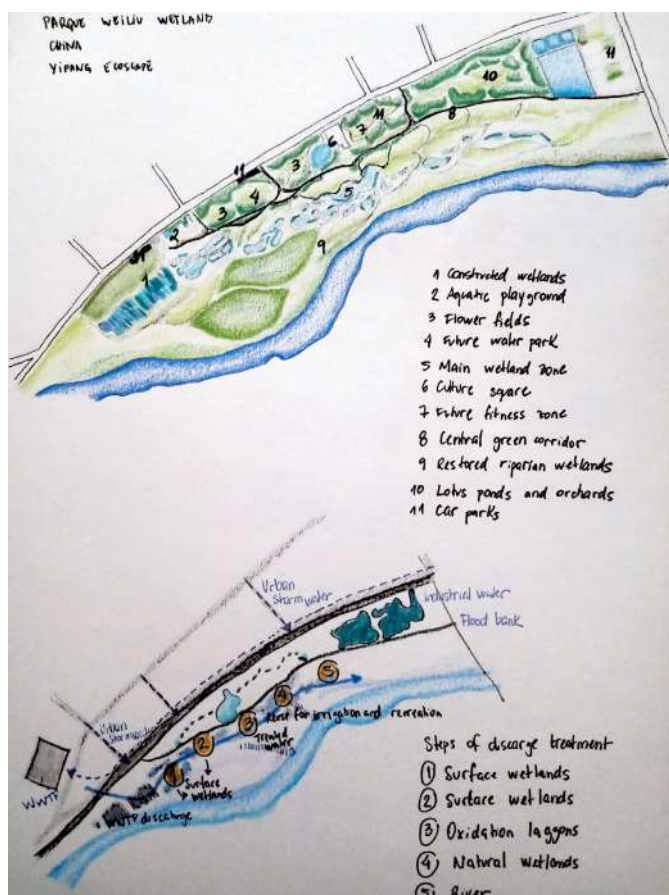 PARQUE WEILIU WETLAND
CHINA
YIPANG ECOSCAPE
11
10
11
7
8
6
3
11
4
3
5
2
9
1
1 Constructed wetlands
2 Aquatic playground
3 Flower fields
4 Future water park
5 Main wetland zone
6 Culture square
7 Future fitness zone
8 Central green corridor
9 Restored riparian wetlands
10 Lotus ponds and orchards
11 Car parks
Urban
Stormwater
Industrial water
Flood bank
Urban
5
4
Reuse for irrigation and recreation
3
Treated
water
2
WWTP
1
Surface
wetlands
WWTP discharge
Steps of discarge treatment
1 Surface wetlands
2 Surface wetlands
3 Oxidation laggons
4 Natural wetlands
5 River